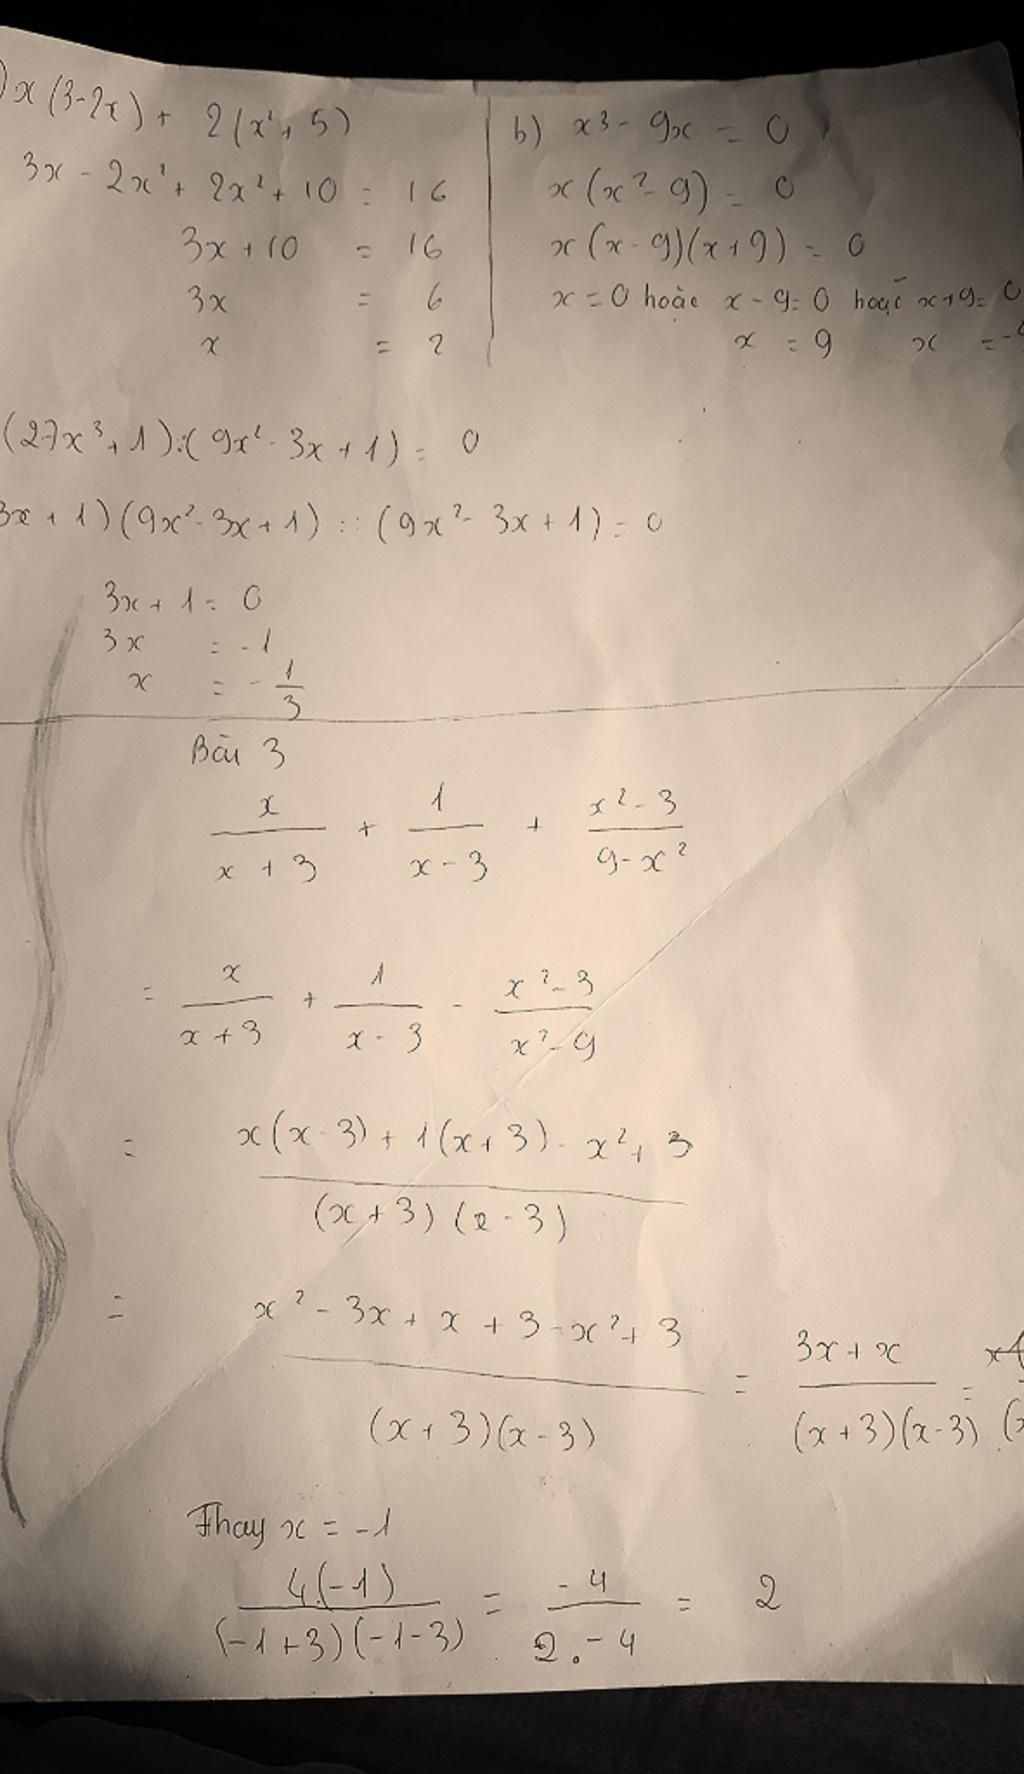 ) x(3-2x) + 2(x²+5)
3x - 2x² + 2x² + 10 = 16
3x + 10 = 16
3x = 6
x = 2
b) x³ - 9x = 0
x(x² - 9) = 0
x(x - 9)(x + 9) = 0
x = 0 hoặc x - 9 = 0 hoặc x + 9 = 0
x = 9 x = -
(27x³ + 1) : (9x² - 3x + 1) = 0
3x + 1)(9x² - 3x + 1) : (9x² - 3x + 1) = 0
3x + 1 = 0
3x = -1
x = - 1/3
Bài 3
x/(x + 3) + 1/(x - 3) + (x² - 3)/(9 - x²)
= x/(x + 3) + 1/(x - 3) - (x² - 3)/(x² - 9)
= (x(x - 3) + 1(x + 3) - x² + 3)/((x + 3)(x - 3))
= (x² - 3x + x + 3 - x² + 3)/((x + 3)(x - 3)) = (3x + x)/((x + 3)(x - 3)) =
Thay x = -1
4.(-1)/((-1 + 3)(-1 - 3)) = -4/(2 . -4) = 2